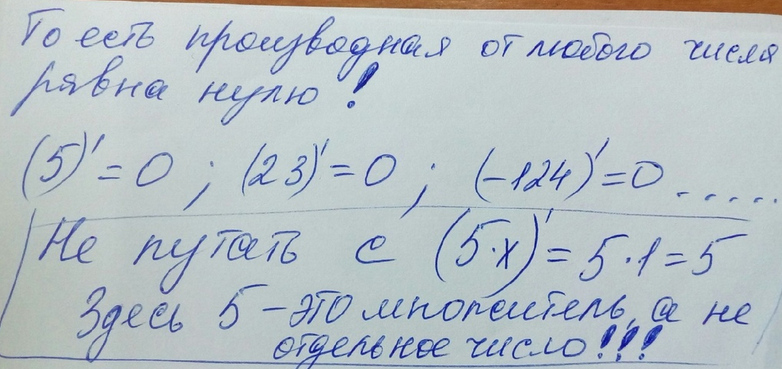 То есть производная от любого числа
равна нулю!
(5)' = 0 ; (23)' = 0 ; (-124)' = 0 .....
Не путать с (5·x)' = 5·1 = 5
Здесь 5 - это множитель, а не
отдельное число!!!